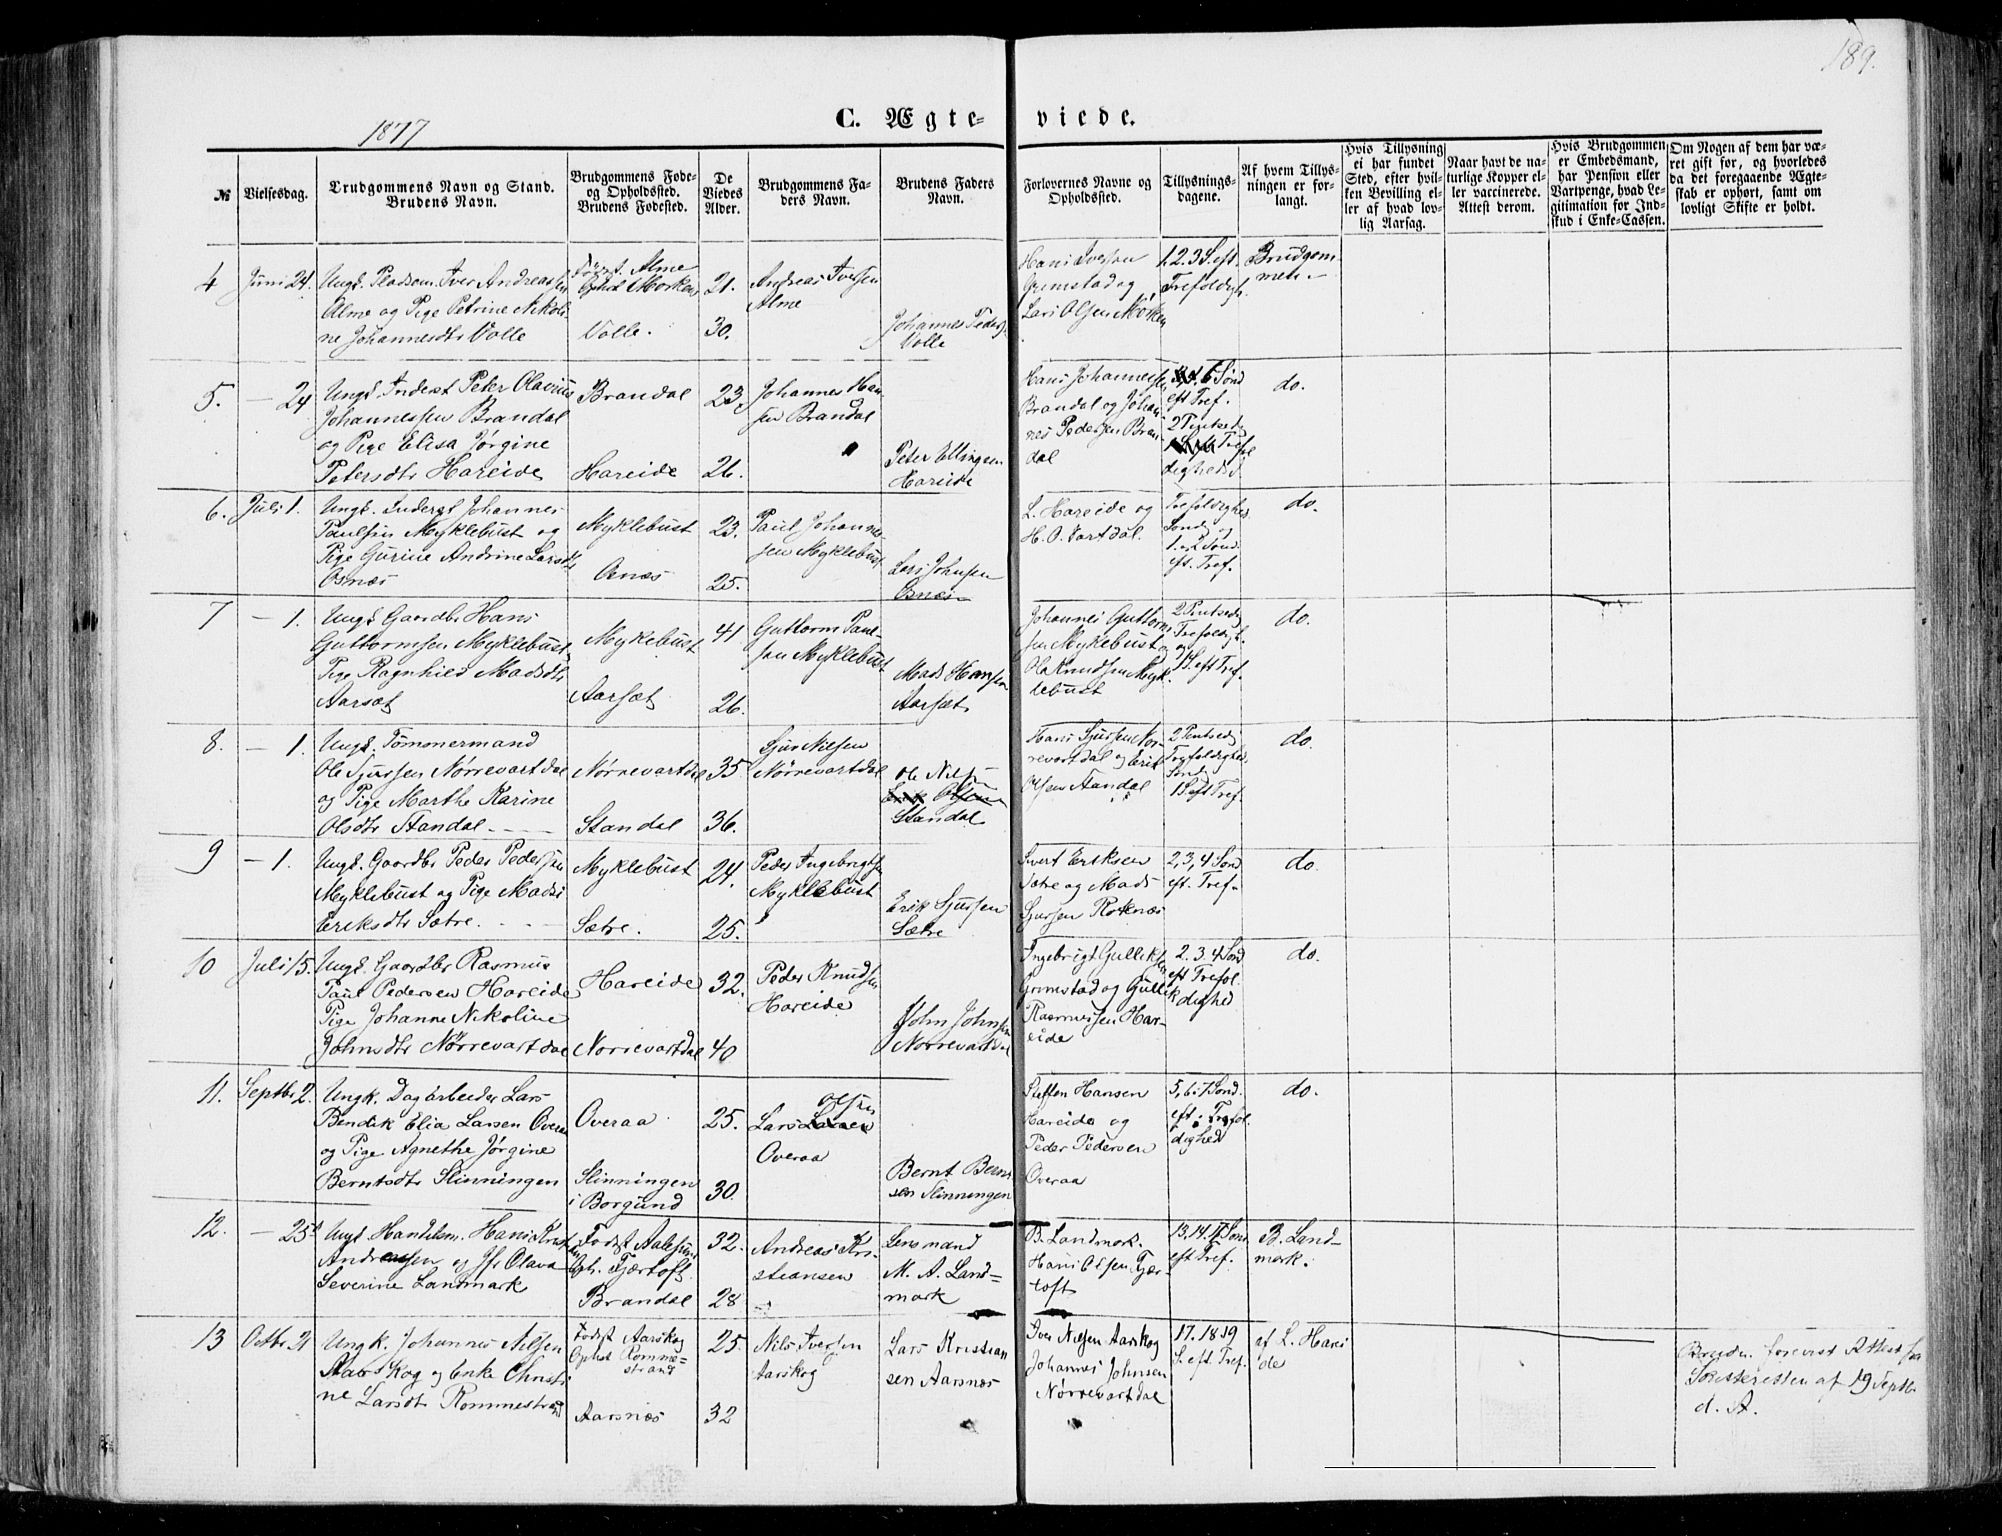 189.
1877
C. Ægte-viede.
№
Vielsesdag.
Brudgommens Navn og Stand.
Brudens Navn.
Brudgommens Føde-
og Opholdssted.
Brudens Fødested.
De
Viedes
Alder.
Brudgommens Fa-
ders Navn.
Brudens Faders
Navn.
Forlovernes Navne og
Opholdssted.
Tillysnings-
dagene.
Af hvem Tillys-
ningen er for-
langt.
Hvis Tillysning
ei har fundet
Sted, efter hvil-
ken Bevilling el-
ler af hvad lov-
lig Aarsag.
Naar havt de na-
turlige Kopper el-
ler vaccinerede.
Attest derom.
Hvis Brudgommen
er Embedsmand,
har Pension eller
Vartpenge, hvad Le-
gitimation for Ind-
skud i Enke-Cassen.
Om Nogen af dem har væ-
ret gift før, og hvorledes
da det foregaaende Ægte-
skab er ophørt, samt om
lovligt Skifte er holdt.
4
Juni 24.
Ungk. Pladsm. Iver Andreassen
Alme og Pige Petrine Nikoli-
ne Johannesdtr Volle
Født Alme
Ophol. Morken
Volle.
21.
30.
Andreas Iversen
Alme
Johannes Peders
Volle
Hans Iversen
Grimstad og
Lars Olsen Morken
1.2.3 S. eft.
Trefoldigh.
Brudgom-
men.
5.
— 24
Ungk. Inderst Peter Olavius
Johannessen Brandal
og Pige Elisa Jørgine
Petersdtr Hareide
Brandal
Hareide
23.
26.
Johannes Han-
sen Brandal
Peter Ellingsen
Hareide
Hans Johannessen
Brandal og Johan-
nes Pedersen Bran-
dal
6 Sønd
eft Tref.
2 Pintsed
Trefol
digheds S.
do.
6.
Juli 1.
Ungk. Inderst Johannes
Paulsen Myklebust og
Pige Gurine Andrine Larsdtr
Osnæs
Myklebust
Osnæs
23.
25.
Paul Johannes-
sen Myklebust
Lars Johnsen
Osnæs
L. Hareide og
H. O. Vartdal.
Trefoldighed
Sønd og
1. & 2 Sønd.
eft. Tref.
do.
7
— 1.
Ungk Gaardbr Hans
Guttormsen Myklebust
Pige Ragnhild Madsdtr
Aarsæt
Myklebust
Aarsæt
41
26.
Guttorm Paul-
sen Myklebust
Mads Hansen
Aarsæt
Johannes Guttorm-
sen Myklebust og
Ola Knudsen Myk-
lebust
2 Pintsed
Trefoldigh.
og
1 S. eft Tref.
do.
8.
— 1.
Ungk. Tømmermand
Ole Sjursen Nørrevartdal
og Pige Marthe Karine
Olsdtr Standal
Nørrevartdal
Standal
35
36.
Sjur Nilsen
Nørrevartdal
Ole Nilsen
Erik Olsen
Standal
Hans Sjursen Nør-
revartdal og Erik
Olsen Standal
2 Pintsed
Trefoldighed
Sønd
1 S. eft Tref.
do.
9
— 1.
Ungk. Gaardbr Peder Pedersen
Myklebust og Pige Madsi
Eriksdtr Sætre.
Myklebust
Sætre.
24.
25.
Peder Ingebrigtsen
Myklebust
Erik Sjursen
Sætre
Sivert Eriksen
Sætre og Mads
Sjursen Roknæs
2, 3, 4 Sønd
eft. Tref.
do.
10
Juli 15.
Ungk. Gaardbr Rasmus
Paul Pedersen Hareide
Pige Johanne Nikoline
Johnsdtr Nørrevartdal
Hareide
Nørrevartdal
32.
40
Peder Knudsen
Hareide
John Johnsen
Nørrevartdal
Ingebrigt Gulliksen
Grimstad og Gullik
Rasmussen Har-
eide
2. 3. 4 Sønd
eft Trefol-
dighed
do.
11.
Septbr 2.
Ungk. Dagarbeider Lars
Bendik Elia Larsen Overaa
og Pige Agnethe Jørgine
Berntsdtr Slinningen
Overaa
Slinningen
i Borgund
25.
30.
Olsen
Lars Larsen
Overaa
Bernt Bernt
sen Slinningen
Steffen Hansen
Hareide og
Peder Pedersen
Overaa
5, 6. 7 Sønd.
eft. Trefol
dighed
do.
12.
— 25de
Ungk Handelsm. Hans Kristian
Andreassen og Jfr Olava
Severine Landmark
Født Aalesund
Oph. Fjærtoft
Brandal
32.
28
Andreas Kri-
stiansen
Lensmand
M. A. Land-
mark
B. Landmark.
Hans Olsen Fjær-
toft
13. 14. 15 Sønd
eft Tref.
B. Land-
mark.
13
Octbr 21
Ungk. Johannes Nilsen
Aarskog og Enke Christi
ne Larsdtr Rommestrand
Født Aarskog
Ophol Romme-
strand
Aarsnæs
25.
32
Nils Iversen
Aarskog
Lars Kristian
sen Aarsnæs
Iver Nilsen Aarskog
Johannes Johnsen
Nørrevartdal
17. 18 19
S. eft. Tref.
af L. Harei
de
Bruden forevist Attest fra
Skifteretten af 19 Septbr
d. A.